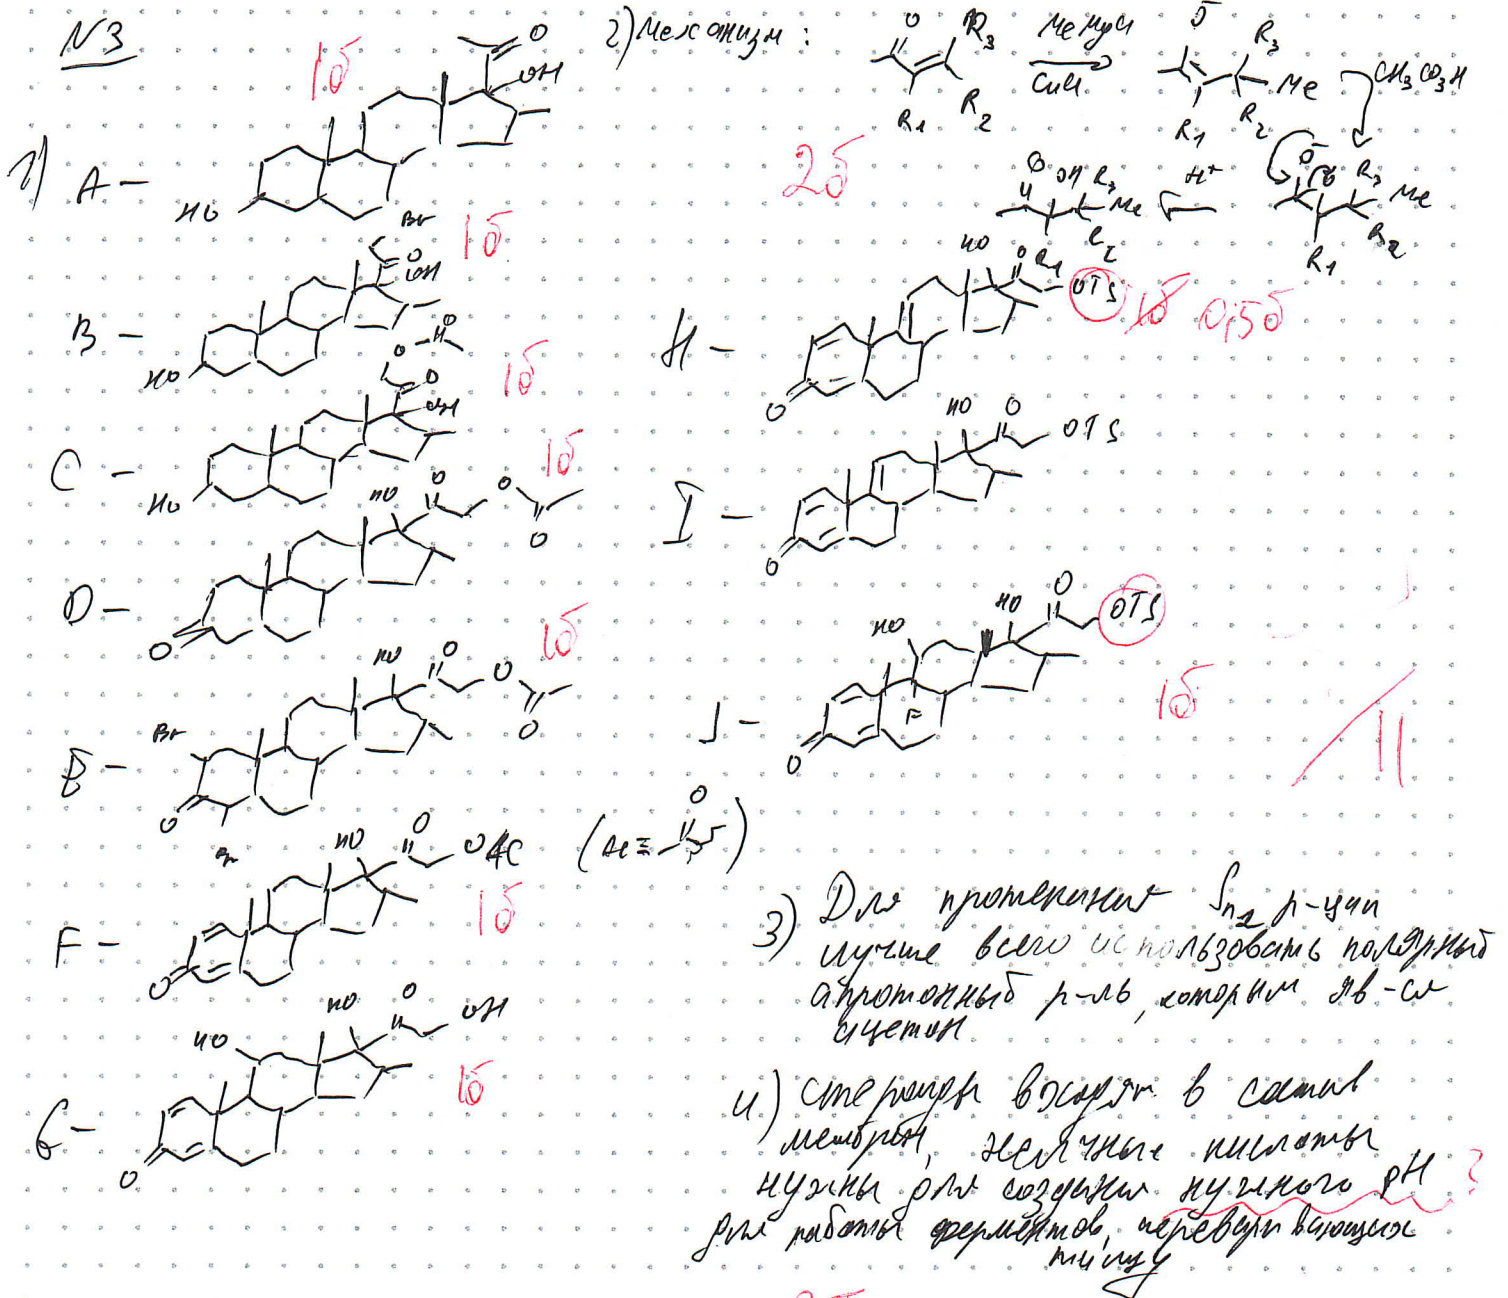 N3
1)
A –
1б
O
OH
HO
B –
1б
Br
O
OH
HO
C –
1б
O
O
O
OH
HO
D –
1б
HO
O
O
O
O
E –
1б
Br
HO
O
O
O
O
Br
F –
1б
HO
O
OAc
O
(Ac ≡
O
)
G –
1б
HO
HO
O
OH
O
2) Механизм :
O
R3
R1
R2
MeMgCl
CuCl
R3
Me
R1
R2
CH3CO3H
2б
O
OH
R3
Me
R2
R1
H+
O-
O
R3
Me
R2
R1
H –
HO
O
OTS
1б 0,5б
O
I –
HO
O
OTS
O
J –
HO
HO
O
OTS
F
1б
O
11
3) Для протекания Sn2 р-ции
лучше всего использовать полярный
апротонный р-ль, которым яв-ся
ацетон
4) Стероиды входят в состав
мембран, желчные кислоты
нужны для создания нужного pH ?
для работы ферментов, переваривающих
пищу